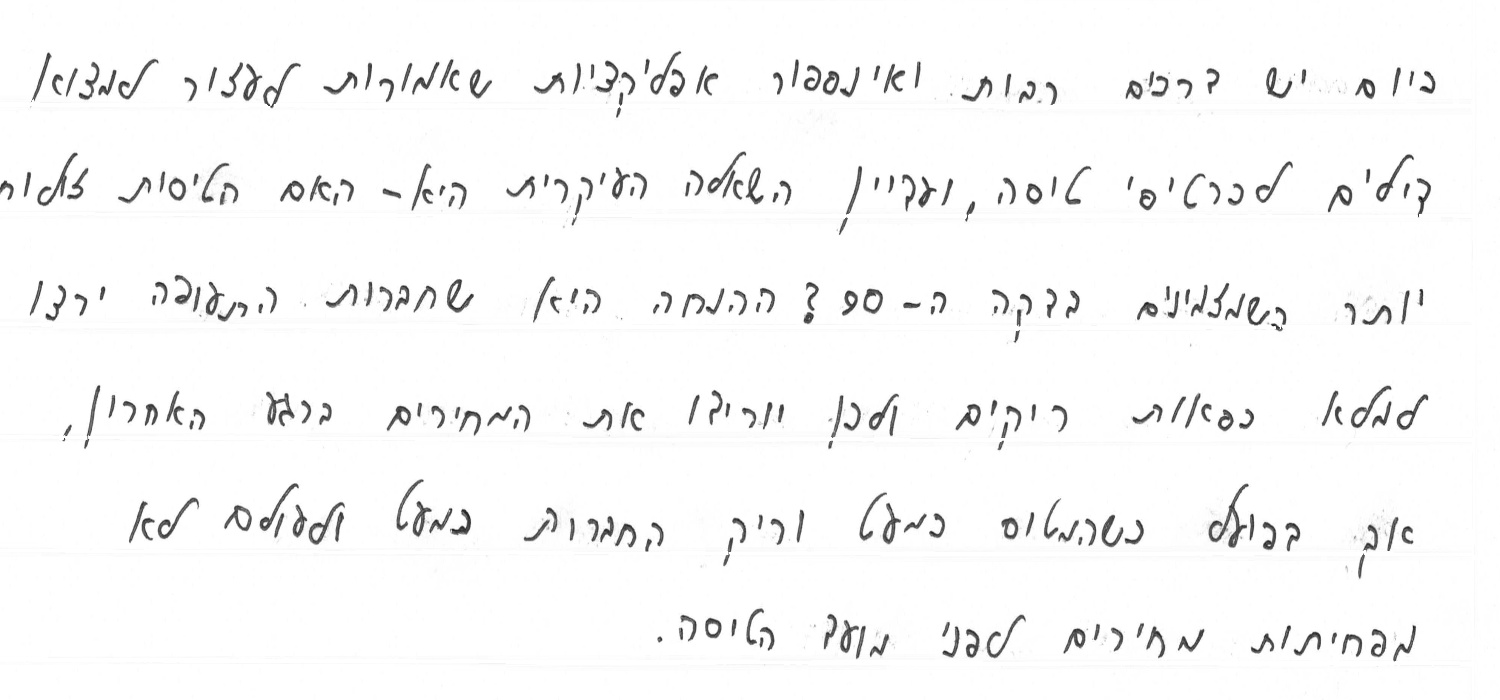 כיום יש דרכים רבות ואינספור אפליקציות שאמורות לעזור למצוא
דילים לכרטיסי טיסה, ועדיין השאלה העיקרית היא - האם הטיסות זולות
יותר כשמזמינים בדקה ה-90? ההנחה היא שחברות התעופה ירצו
למלא כסאות ריקים ולכן יורידו את המחירים ברגע האחרון,
אך בפועל כשהמטוס כמעט וריק החברות כמעט ולעולם לא
מפחיתות מחירים לפני מועד הטיסה.